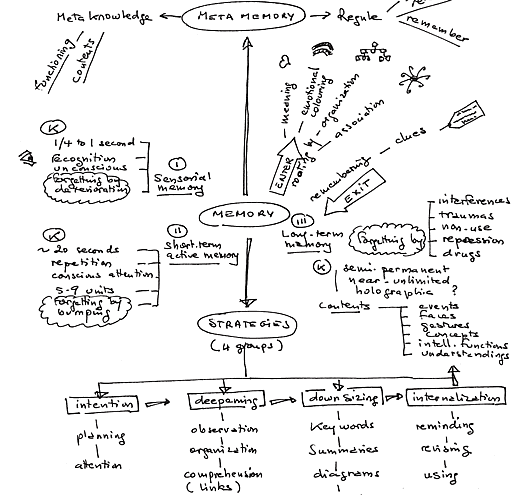 Metaknowledge
META MEMORY
Regule
remember
functioning
contents
meaning
emotional
colouring
organization
association
rooting by
ENTER
clues
remembering
EXIT
K
1/4 to 1 second
recognition
unconscious
forgetting by
deterioration
I
Sensorial
memory
MEMORY
K
~ 20 seconds
repetition
conscious attention
5-9 units
forgetting by
bumping
II
Short-term
active memory
III
Long-term
memory
forgetting by
interferences
traumas
non-use
repression
drugs
K
semi-permanent
near-unlimited
holographic ?
contents
events
faces
gestures
concepts
intell. functions
understandings
STRATEGIES
(4 groups)
intention
planning
attention
deepening
observation
organization
comprehension
(links)
downsizing
Keywords
Summaries
diagrams
internalization
reminding
revising
using